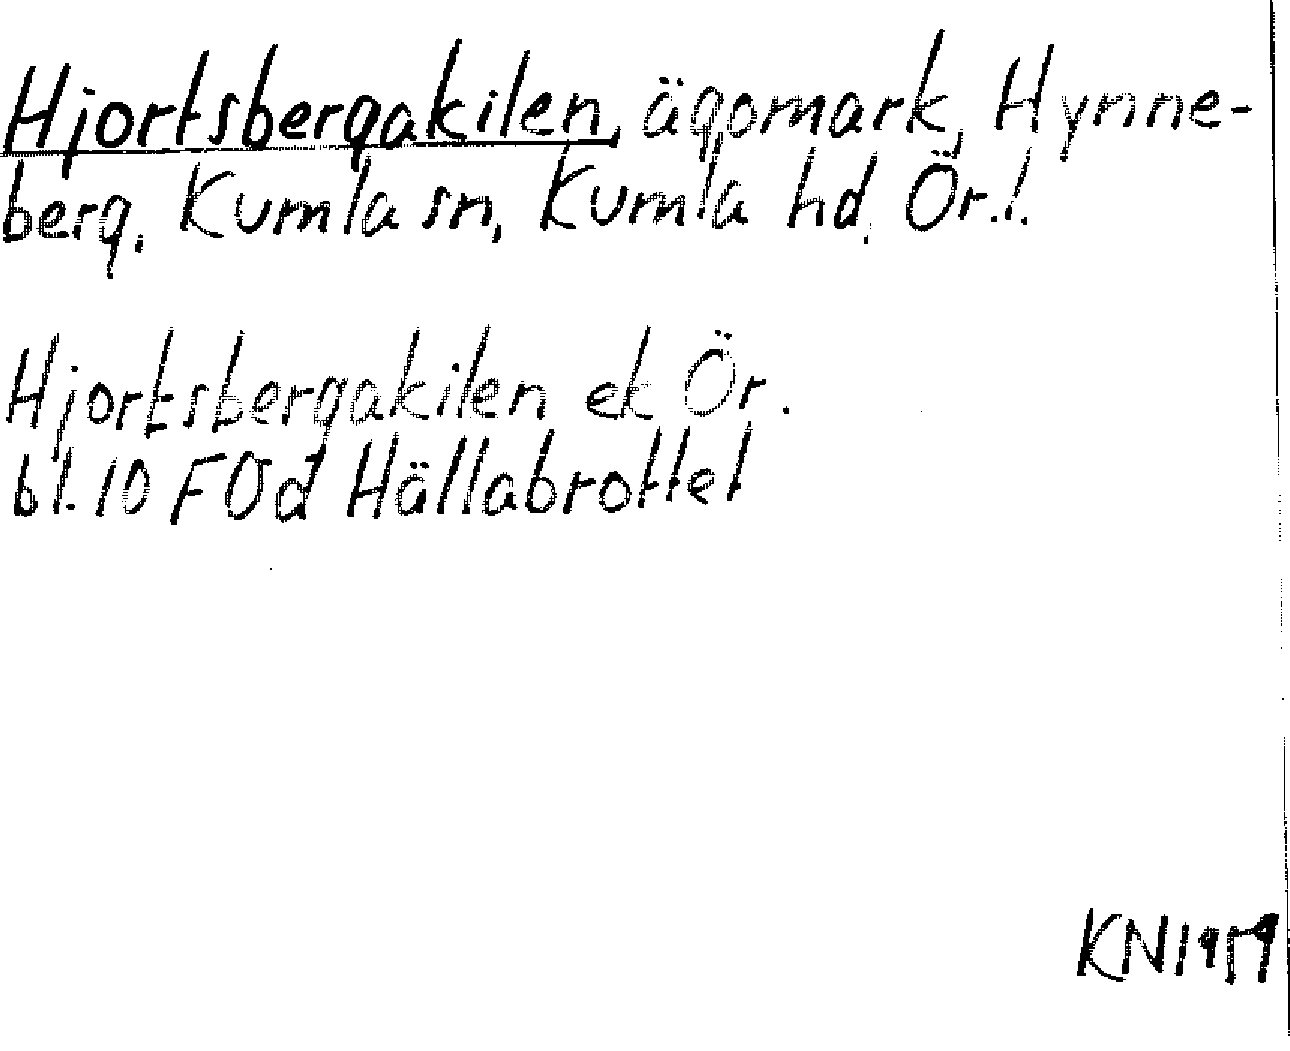 Hjortsbergakilen, ägomark, Hynne-
berg, Kumla sn, Kumla hd, Ör.l.
Hjortsbergakilen ek Ör.
bl. 10 FOd Hällabrottet
KN1959